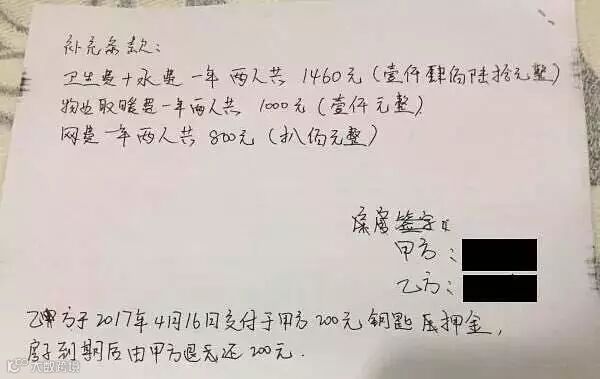 补充条款：
卫生费+水费 一年 两人共 1460元（壹仟肆佰陆拾元整）
物业取暖费一年两人共 1000元（壹仟元整）
网费一年两人共 800元（扒佰元整）
签字
甲方：
乙方：
乙方于2017年4月16日交付于甲方200元钥匙押金，
房子到期后由甲方退还200元.
大数跨境